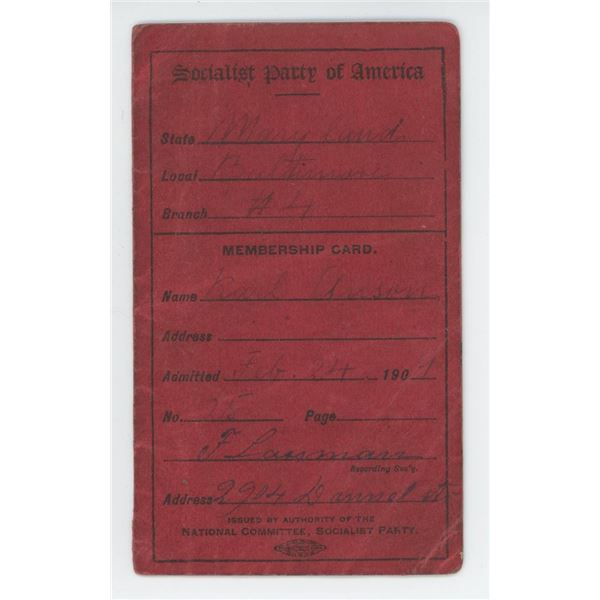 Socialist Party of America
State Maryland
Local Baltimore
Branch # 4
MEMBERSHIP CARD.
Name Karl
Address
Admitted Feb. 24 190
No. 25 Page
F
Recording Sec'y.
Address 2904 st
ISSUED BY AUTHORITY OF THE
NATIONAL COMMITTEE, SOCIALIST PARTY.